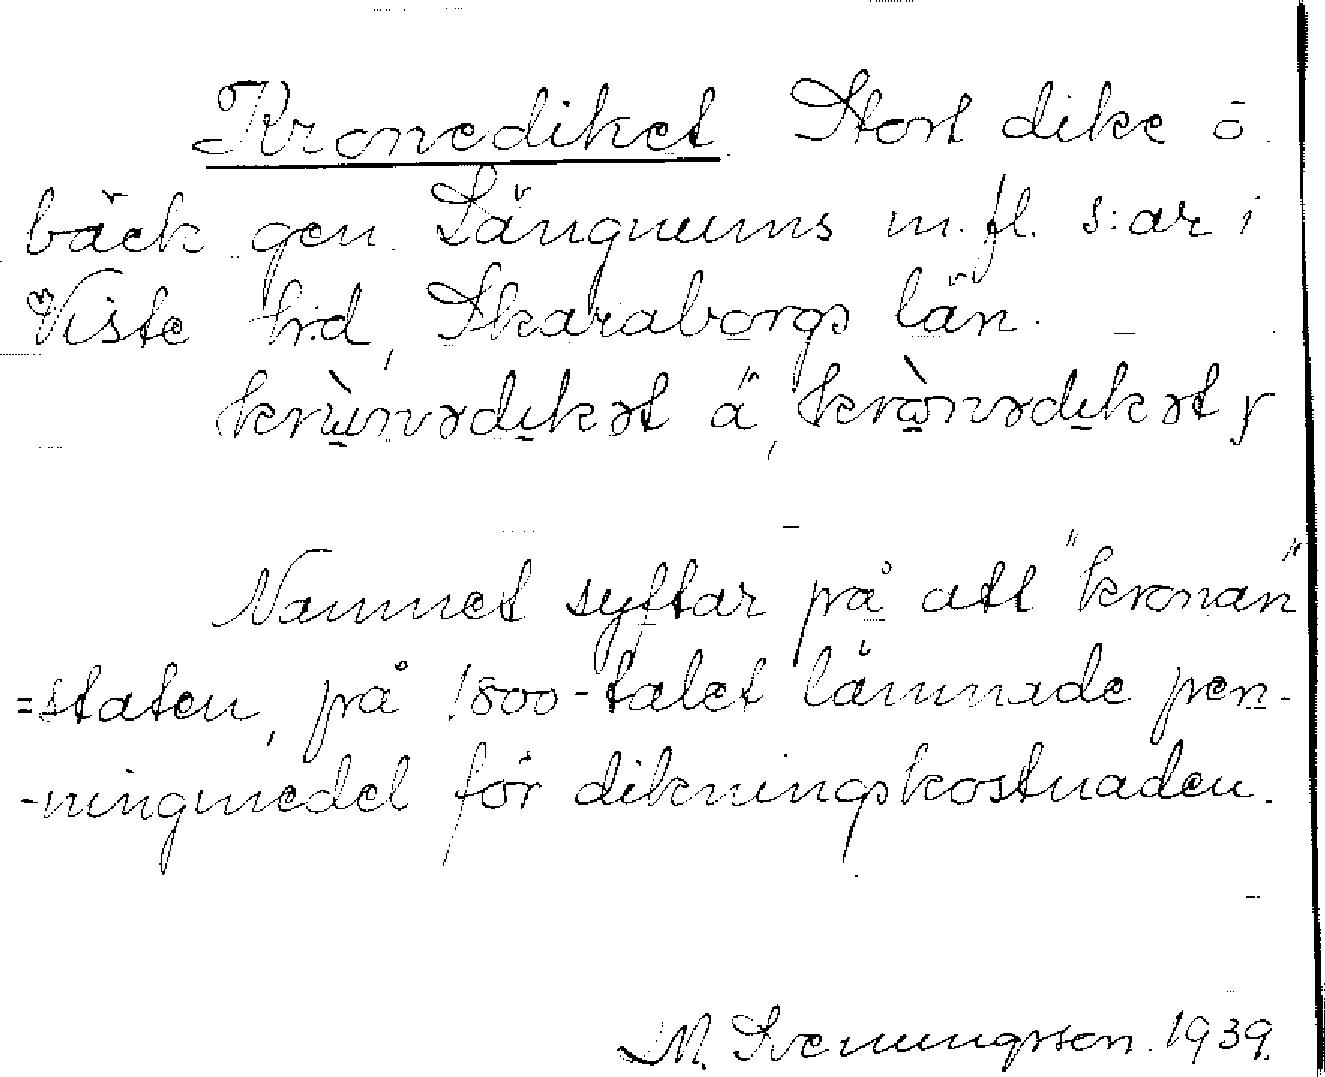 Kronediket. Stort dike o.
bäck gen. Längnums m.fl. s:ar i
Viste hrd, Skaraborgs län.
krùnədikət ä, krònədikət
Namnet syftar på att "kronan"
=staten, på 1800-talet lämnade pen-
-ningmedel för dikningskostnaden.
M. Svenungsson. 1939.